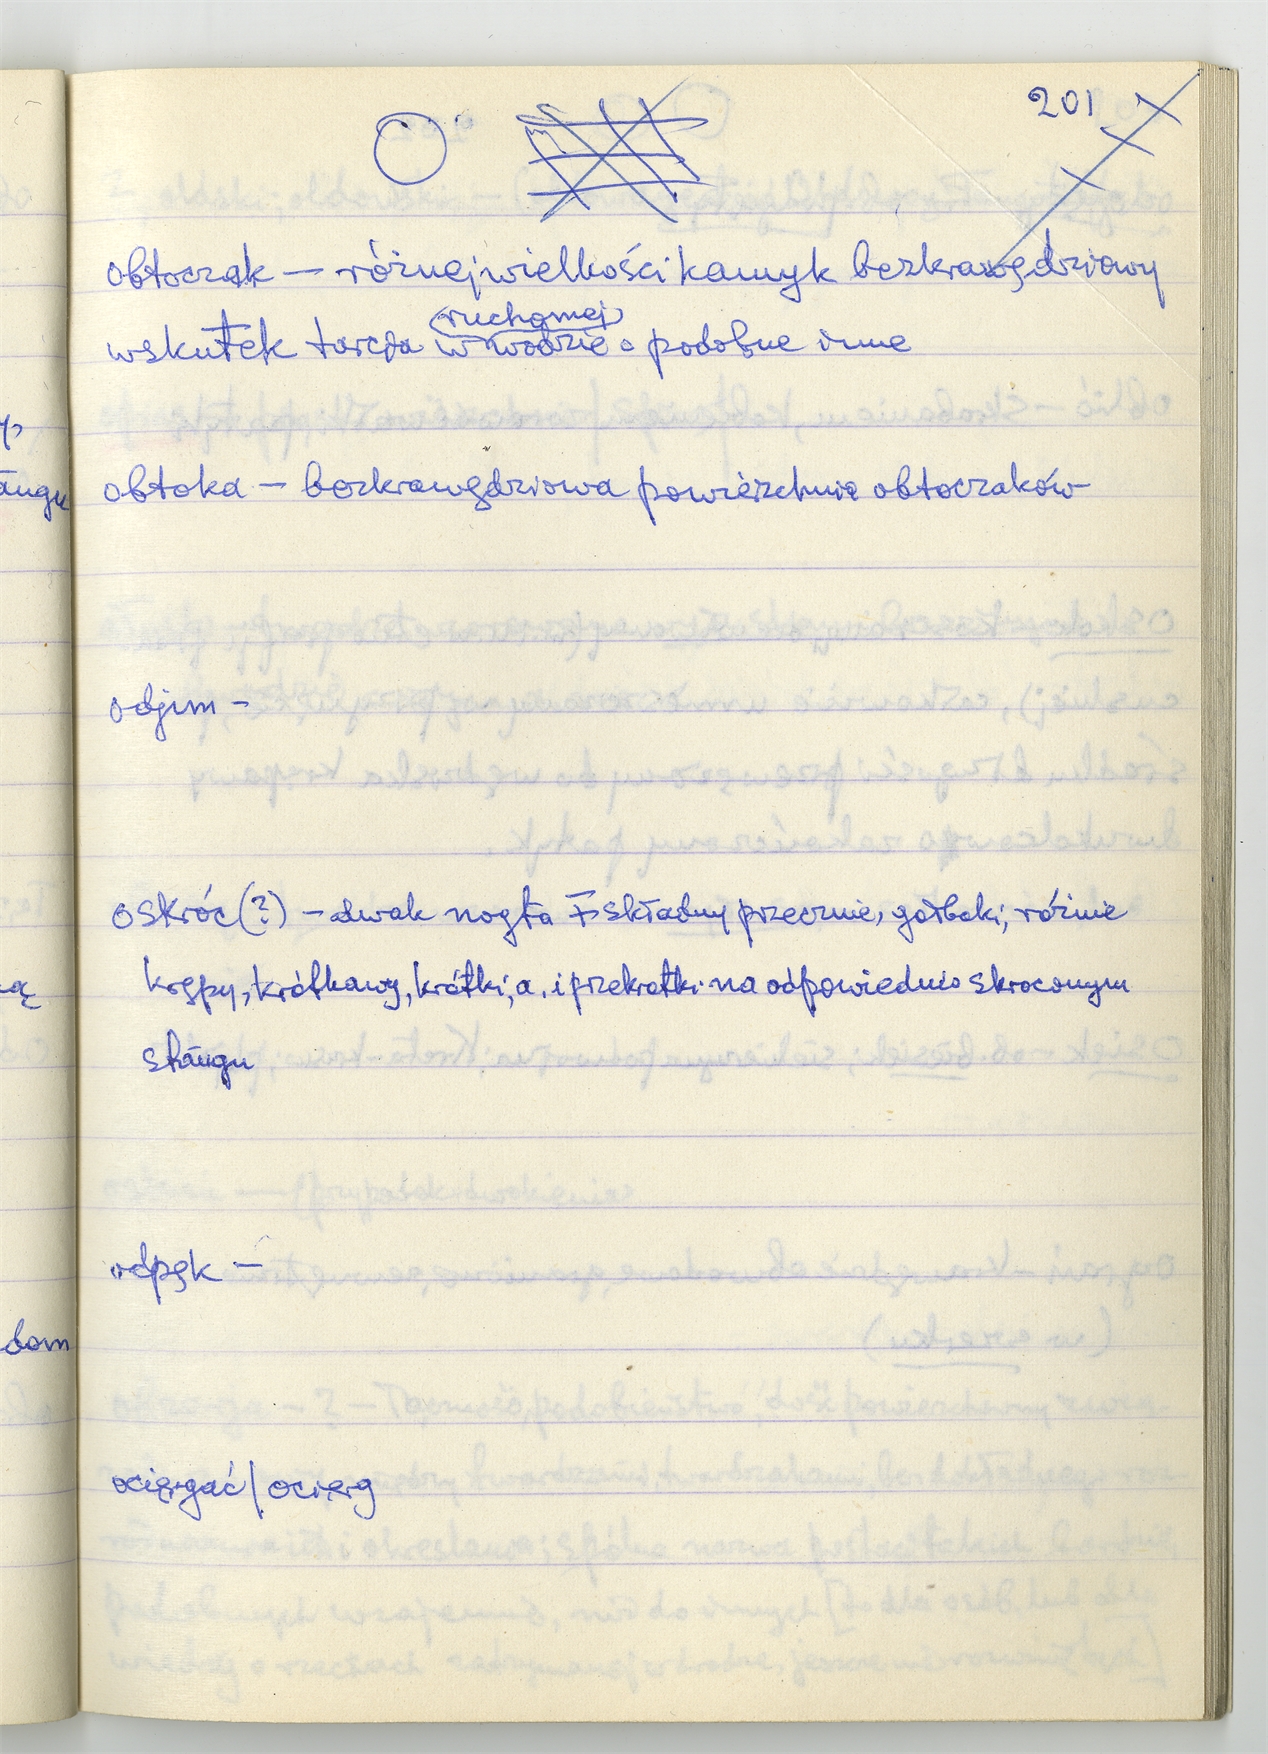 201
O
obtoczak — różnej wielkości kamyk bezkrawędziowy
ruchomej
wskutek tarcia w wodzie o podobne inne
obtoka — bezkrawędziowa powierzchnia obtoczaków
odjim —
oskróc (?) — dwak nogła składny przecznie, garbaki, różnie
krępy, krótkawy, krótki, a. i przekrótki na odpowiednio skróconym
stāngu
odpęk —
ocięgać / ocięg
āngu
dom